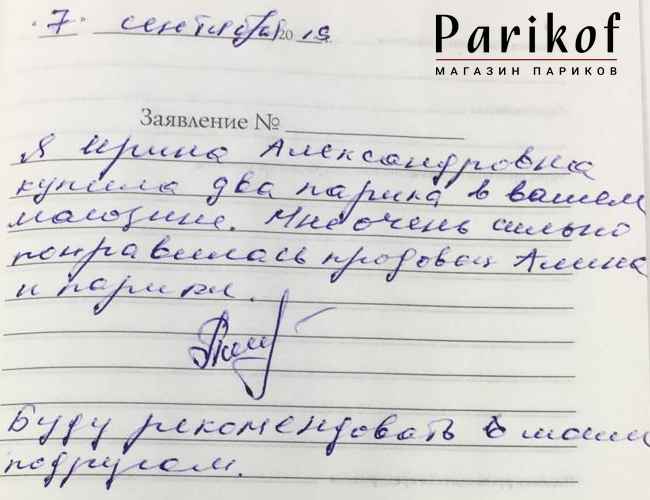 7 сентября 20 19
Parikof
МАГАЗИН ПАРИКОВ
Заявление №
Я Ирина Александровна
купила два парика в вашем
магозине. Мне очень сильно
понравилась продовец Алина
и парики.
Буду рекомендовать моим
подругам.